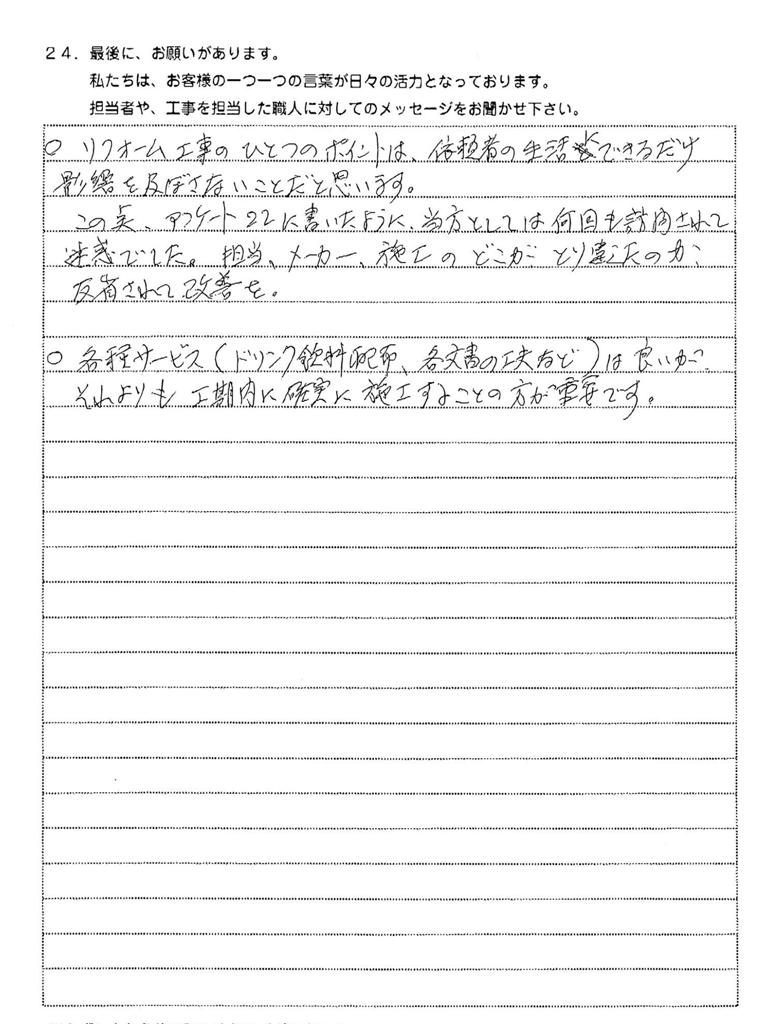 ２４．最後に、お願いがあります。
私たちは、お客様の一つ一つの言葉が日々の活力となっております。
担当者や、工事を担当した職人に対してのメッセージをお聞かせ下さい。
○ リフォーム工事のひとつのポイントは、依頼者の生活にできるだけ
影響を及ぼさないことだと思います。
この点、アンケート22に書いたように、当方としては何回も訪問されて
迷惑でした。担当、メーカー、施工のどこがとり違えたのか、
反省されて改善を。
○ 各種サービス（ドリンク飲料配布、各文書の工夫など）は良いが、
それよりも工期内に確実に施工することの方が重要です。